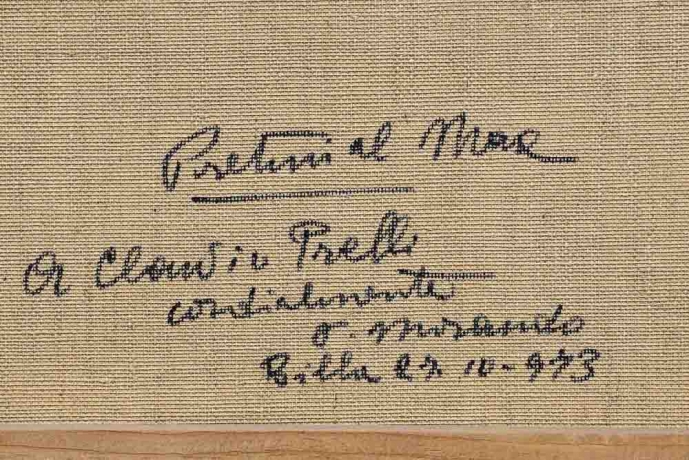 Pretini al Mare
A Claudio Prelli
cordialmente
P. Morando
Biella 27 10-973